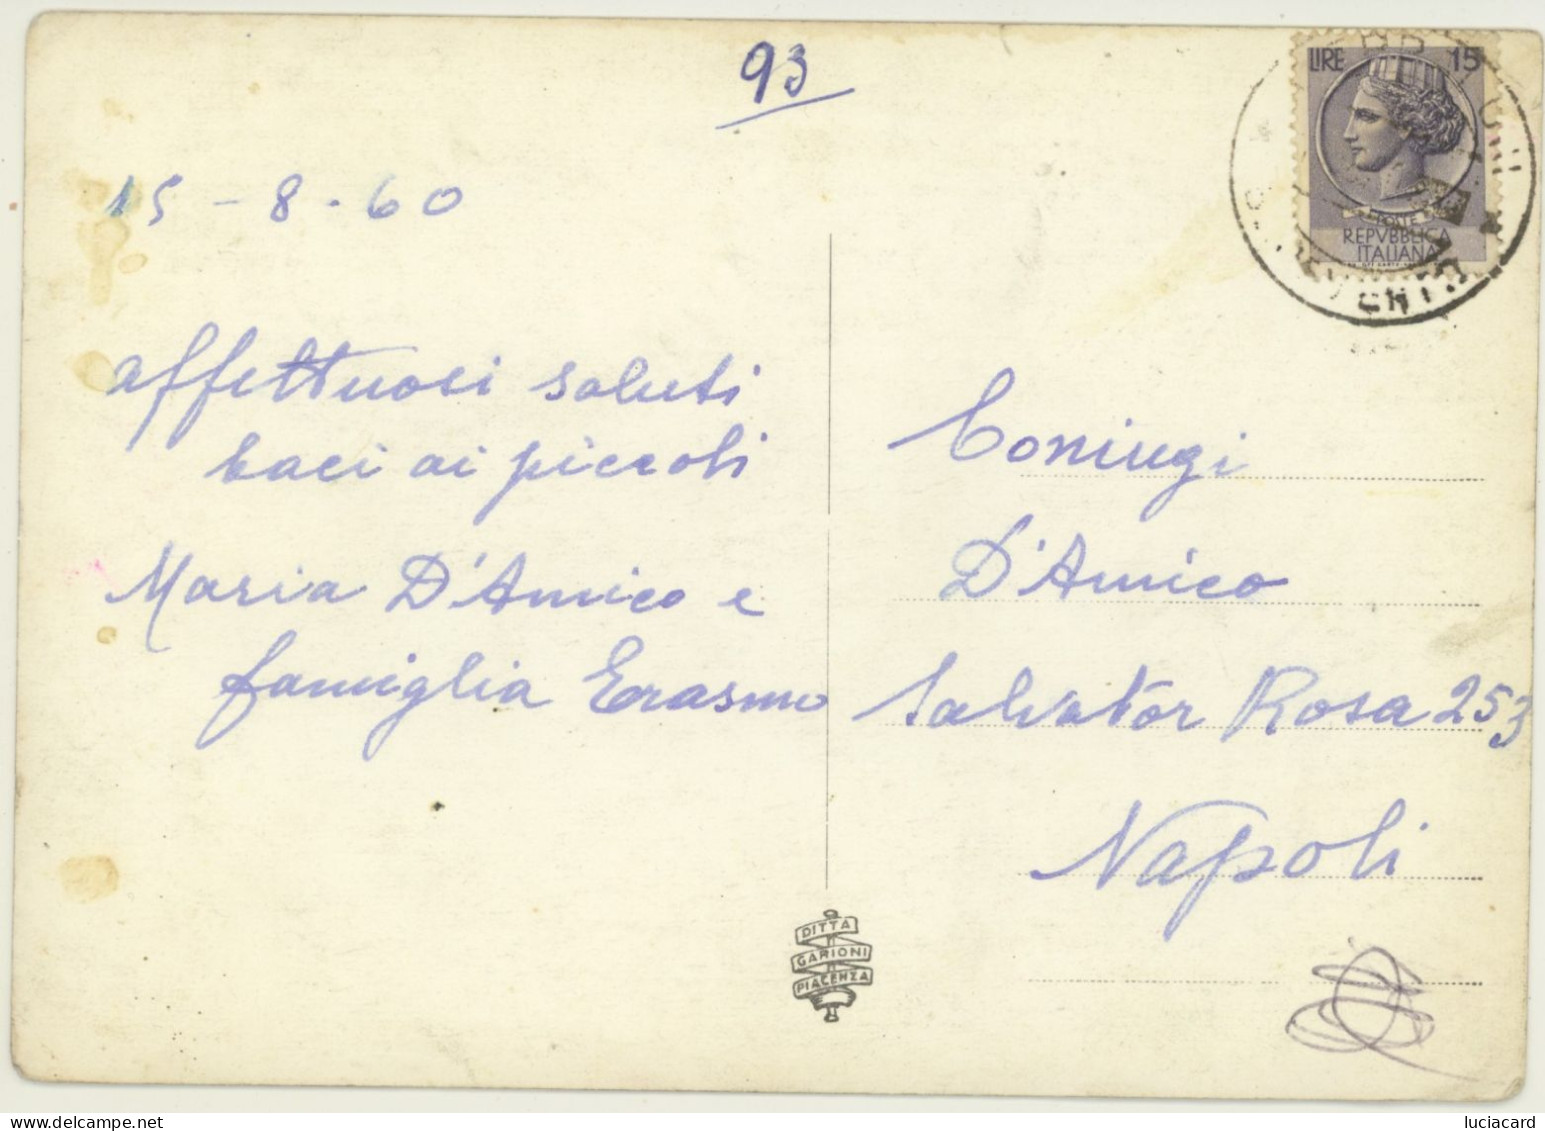 93
15 - 8 - 60
affettuosi saluti
baci ai piccoli
Maria D'Amico e
famiglia Erasmo
LIRE 15
REPVBBLICA
ITALIANA
Coniugi
D'Amico
Salvator Rosa 253
Napoli
DITTA
GARIONI
PIACENZA
luciacard